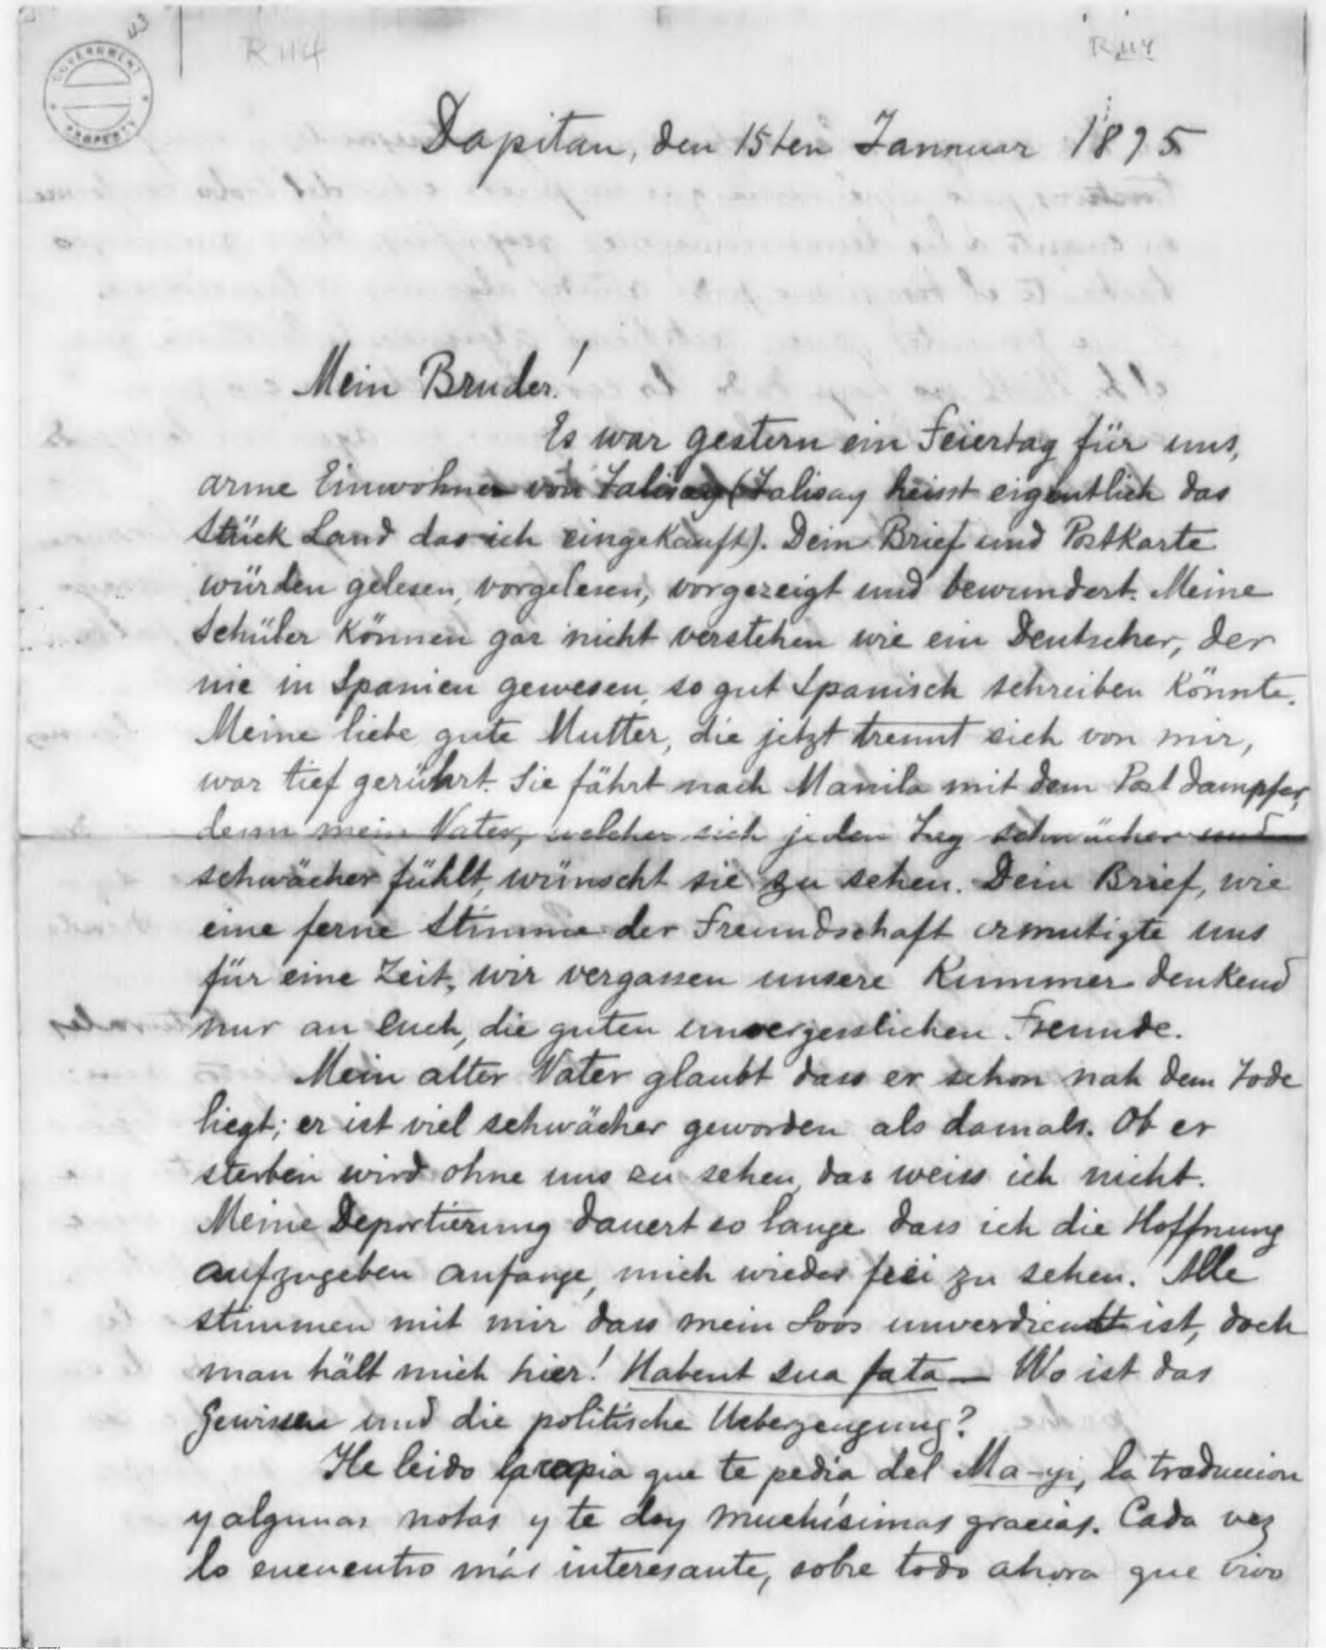 43
R 114
R 114
GOVERNMENT PROPERTY
Dapitan, den 15ten Januuar 1895
Mein Bruder!
Es war gestern ein Feiertag für uns,
arme Einwohner von Talisay (Talisay heisst eigentlich das
Stück Land das ich eingekauft). Dein Brief und Postkarte
würden gelesen, vorgelesen, vorgezeigt und bewundert. Meine
Schüler können gar nicht verstehen wie ein Deutscher, der
nie in Spanien gewesen, so gut Spanisch schreiben könnte.
Meine liebe gute Mutter, die jetzt trennt sich von mir,
war tief gerührt. Sie fährt nach Manila mit dem Postdampfer,
denn mein Vater, welcher sich jeden Tag schwächer und
schwächer fühlt, wünscht sie zu sehen. Dein Brief, wie
eine ferne Stimme der Freundschaft ermutigte uns
für eine Zeit, wir vergassen unsere Kummer denkend
nur an Euch, die guten unvergesslichen Freunde.
Mein alter Vater glaubt dass er schon nah dem Tode
liegt; er ist viel schwächer geworden als damals. Ob er
sterben wird ohne uns zu sehen, das weiss ich nicht.
Meine Deportierung dauert so lange dass ich die Hoffnung
aufzugeben anfange, mich wieder frei zu sehen. Alle
stimmen mit mir dass mein Loos unverdient ist, doch
man hält mich hier! Habent sua fata — Wo ist das
Gewissen und die politische Ueberzeugung?
He leido la copia que te pedia del Ma-yi, la traduccion
y algunas notas y te doy muchísimas gracias. Cada vez
lo encuentro más interesante, sobre todo ahora que vivo